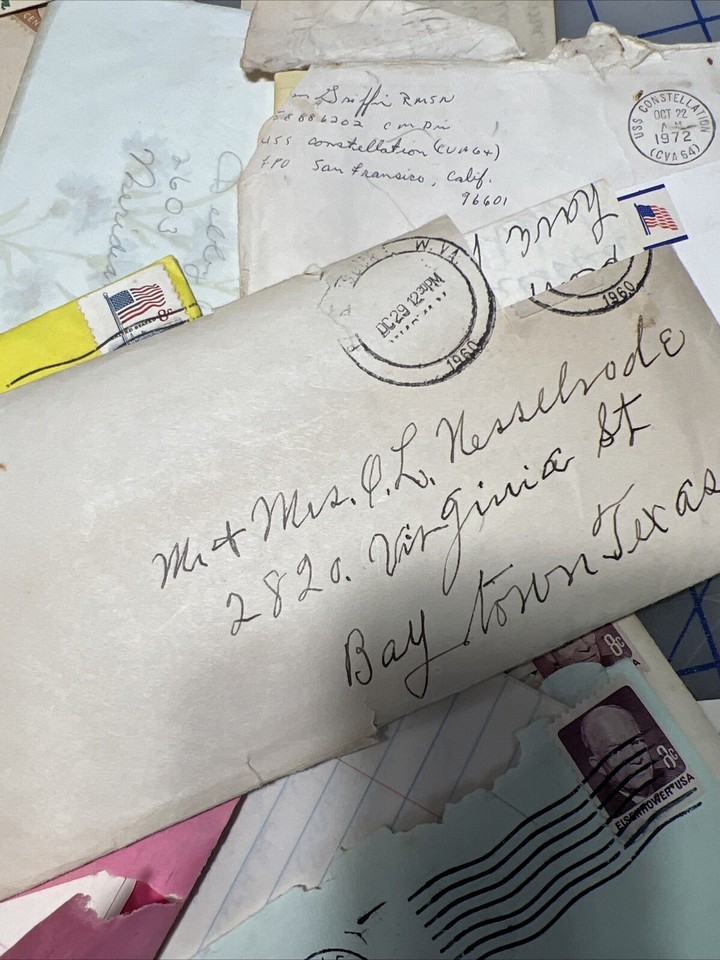 Griffin RMSN
USS Constellation (CVA64)
FPO San Fransico, Calif.
96601
USS CONSTELLATION
OCT 22
A.M.
1972
(CVA 64)
2603
W. VA.
DC 29 1230PM
1960
1960
8c
Mr + Mrs. O.L. Nesselrode
2820. Virginia St
Bay town Texas
8c
8c
EISENHOWER·USA